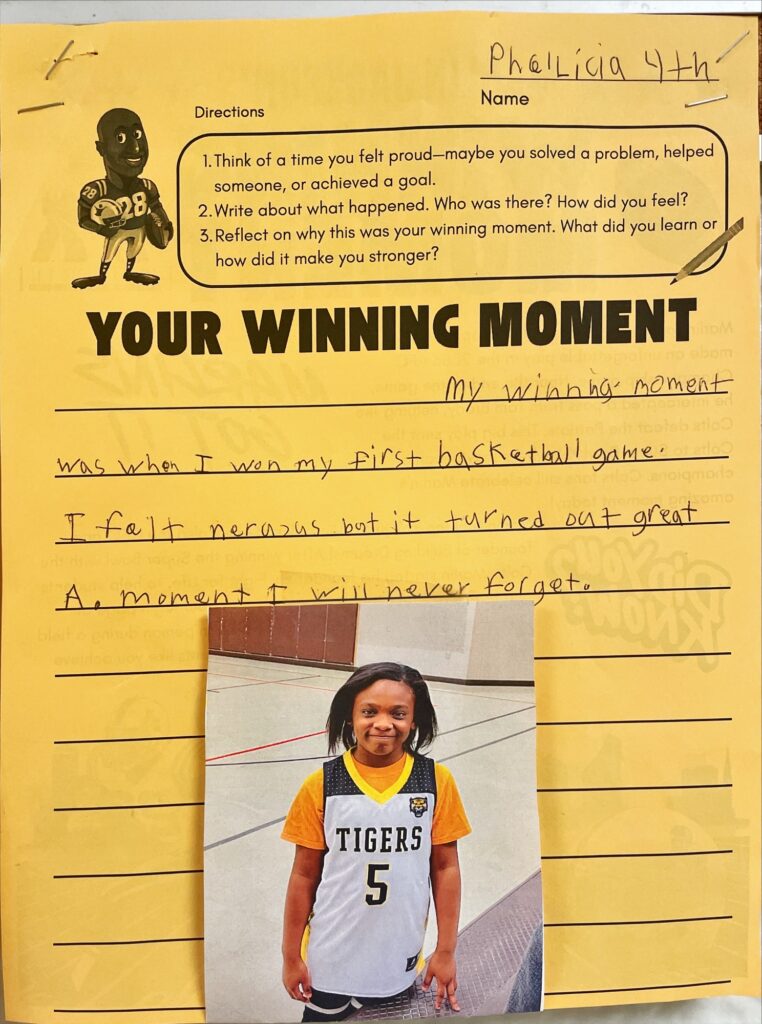 Phallicia 4th
Name
Directions
1. Think of a time you felt proud—maybe you solved a problem, helped
someone, or achieved a goal.
2. Write about what happened. Who was there? How did you feel?
3. Reflect on why this was your winning moment. What did you learn or
how did it make you stronger?
28
28
YOUR WINNING MOMENT
My winning moment
was when I won my first basketball game.
I falt nervous but it turned out great
A. moment I will never forget.
TIGERS
5